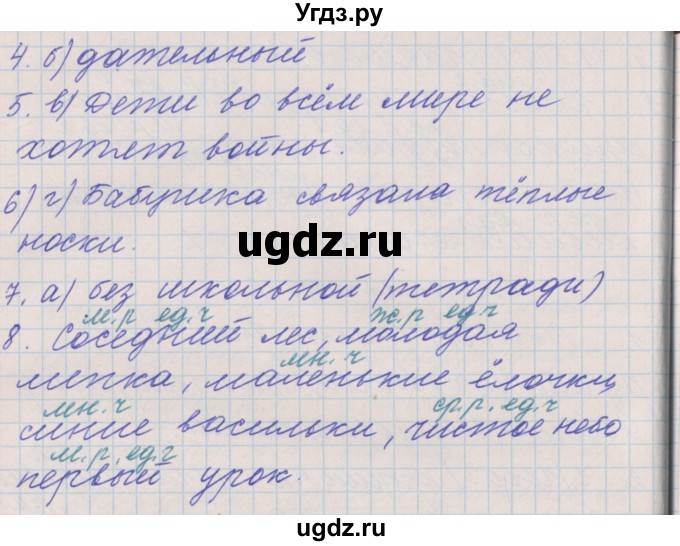 Угдз.ру
4. б) дательный
5. в) Дети во всём мире не
хотят войны.
6) г) Бабушка связала тёплые
носки.
ugdz.ru
7. а) без школьной (тетради)
м.р ед.ч ж.р ед.ч
8. Соседний лес, молодая
мн.ч
липка, маленькие ёлочки,
мн.ч ср.р. ед.ч
синие васильки, чистое небо
м.р. ед.ч
первый урок.
ugdz.ru